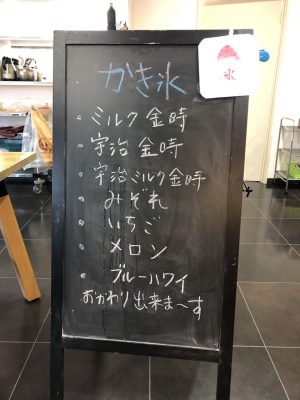 かき氷
氷
・ミルク金時
・宇治金時
・宇治ミルク金時
・みぞれ
・いちご
・メロン
・ブルーハワイ
おかわり出来ま〜す